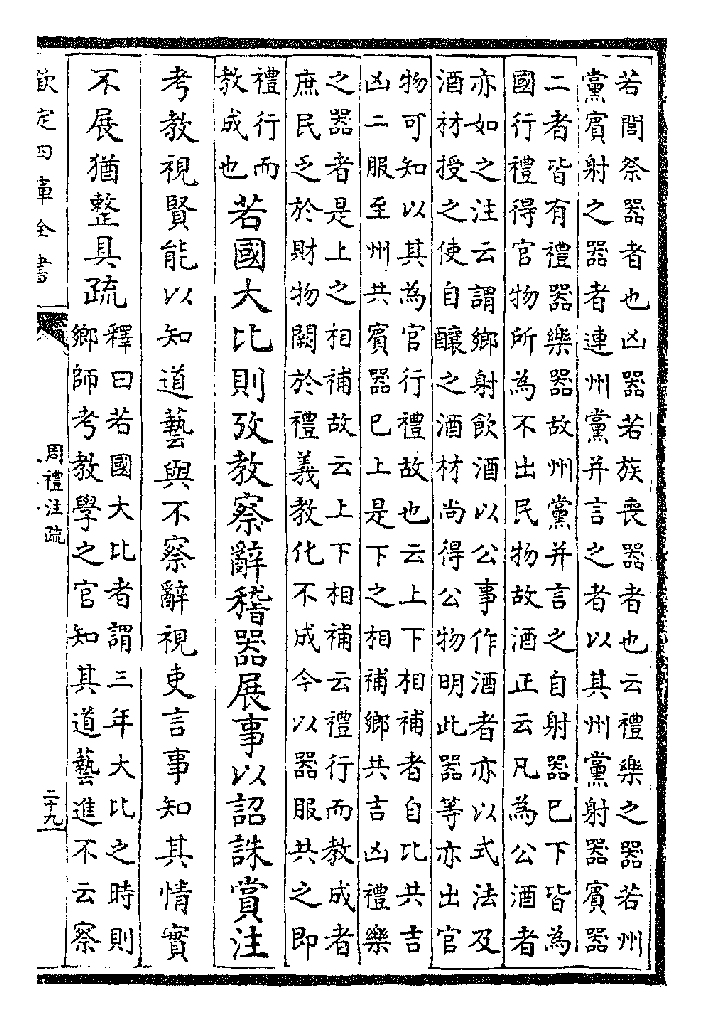 若閭祭器者也凶器若族喪器者也云禮樂之器若州
黨賓射之器者連州黨并言之者以其州黨射器賓器
二者皆有禮器樂器故州黨并言之自射器巳下皆為
國行禮得官物所為不出民物故酒正云凡為公酒者
亦如之注云謂鄉射飲酒以公事作酒者亦以式法及
酒材授之使自釀之酒材尚得公物明此器等亦出官
物可知以其為官行禮故也云上下相補者自比共吉
凶二服至州共賓器巳上是下之相補鄉共吉凶禮樂
之器者是上之相補故云上下相補云禮行而教成者
庶民乏於財物闕於禮義教化不成今以器服共之即
禮行而
教成也
若國大比則攷教察辭稽器展事以詔誅賞注
考教視賢能以知道藝與不察辭視吏言事知其情實
不展猶整具疏
釋曰若國大比者謂三年大比之時則
鄉師考教學之官知其道藝進不云察
欽定四庫全書
周禮注疏
二十九